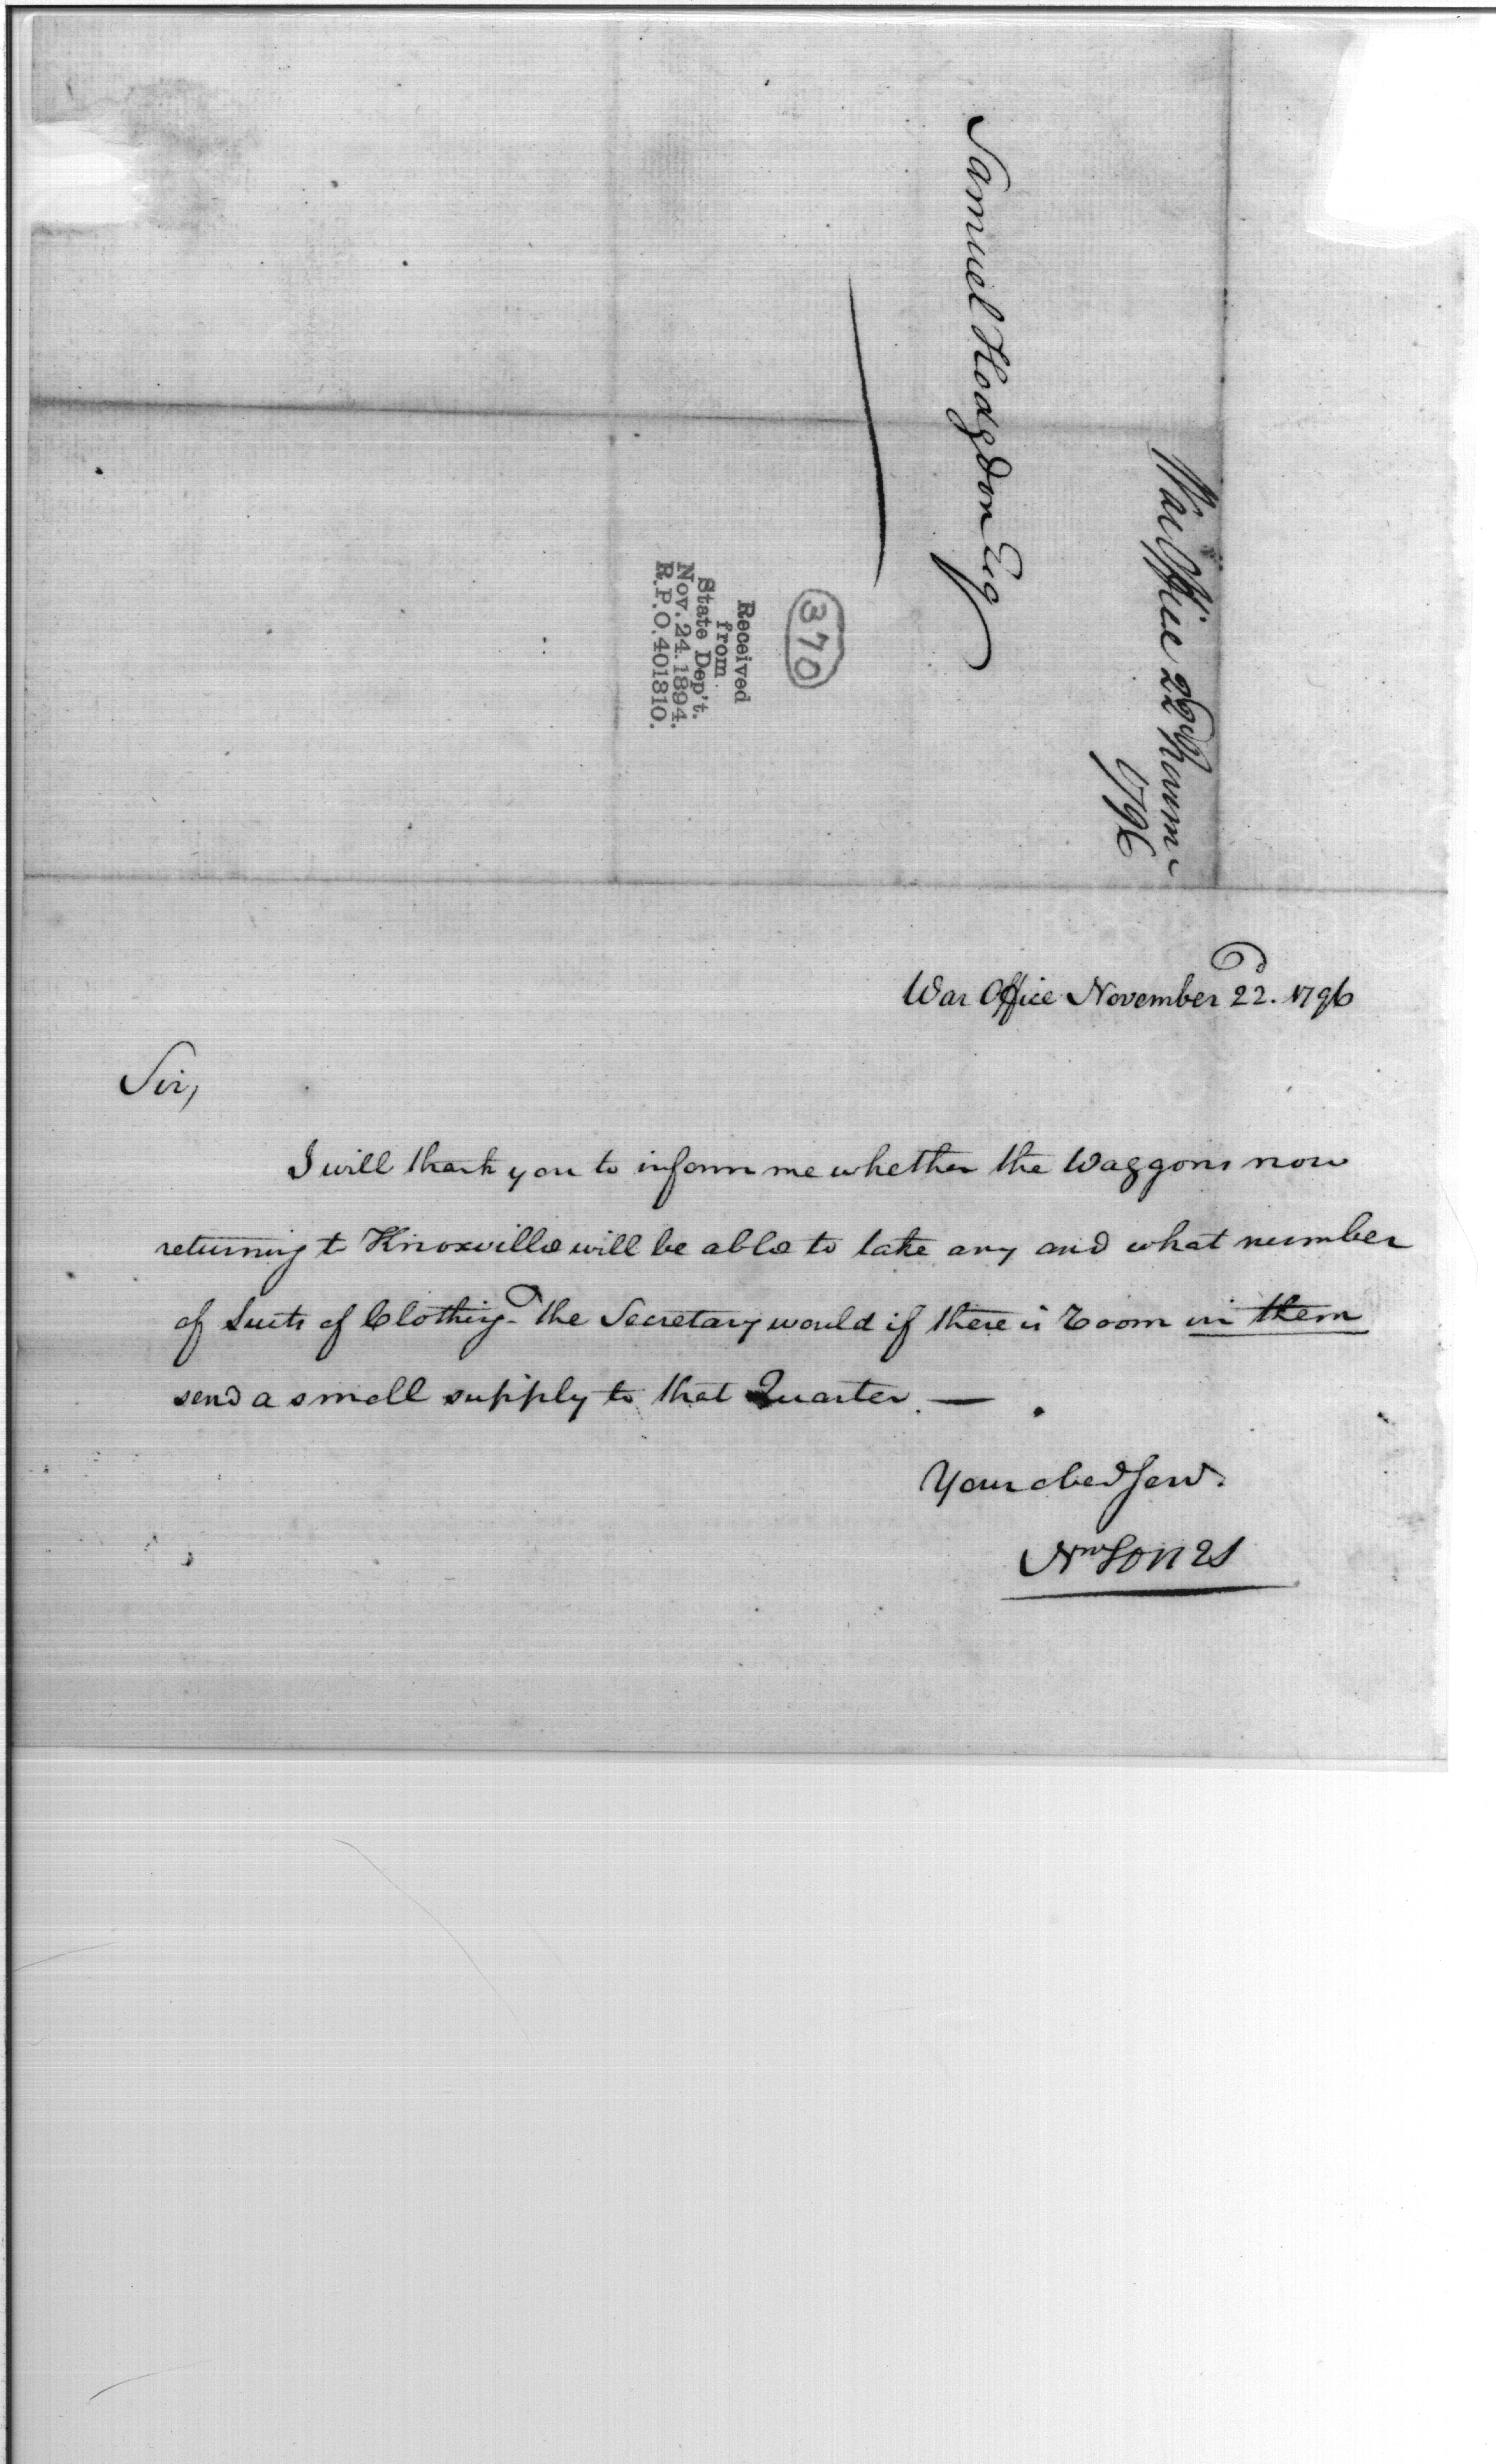 Samuel Hodgdon Esq
War Office 22d Novem
1796
370
Received
from
State Dep't.
Nov. 24. 1894.
R.P.O. 401310.
War Office November 22d. 1796
Sir,
I will thank you to inform me whether the Waggons now
returning to Knoxville will be able to take any and what number
of Suits of Clothing - the Secretary would if there is room in them
send a small supply to that Quarter. —
Your obed Serv.
Jones